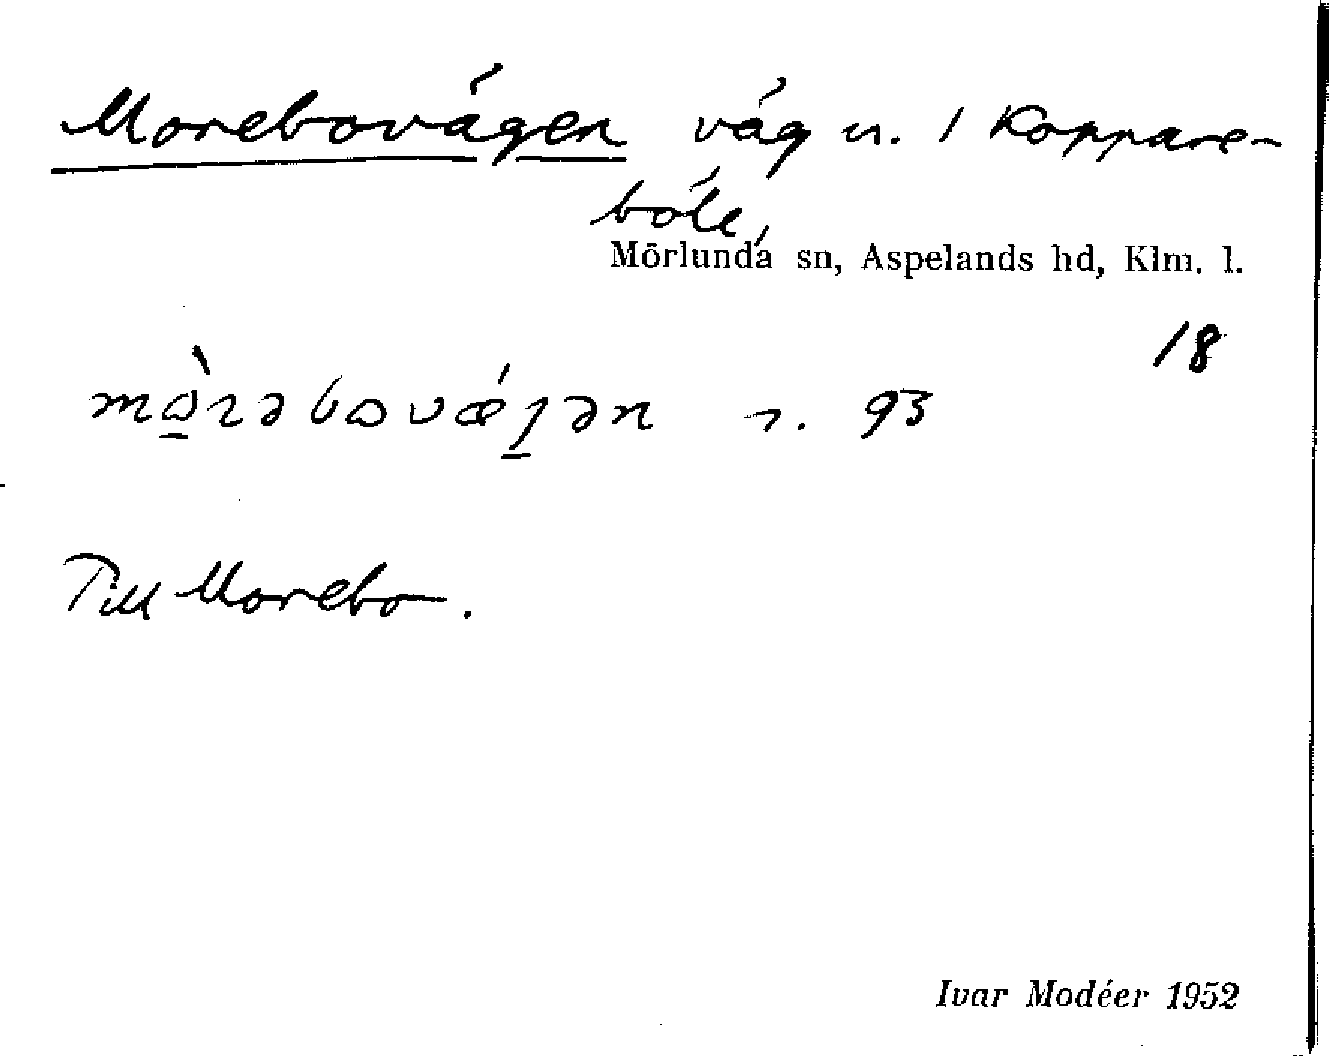 Morebovägen väg u. 1 Koppare-
böle,
Mörlunda sn, Aspelands hd, Klm. l.
18
93
Till Morebo.
Ivar Modéer 1952